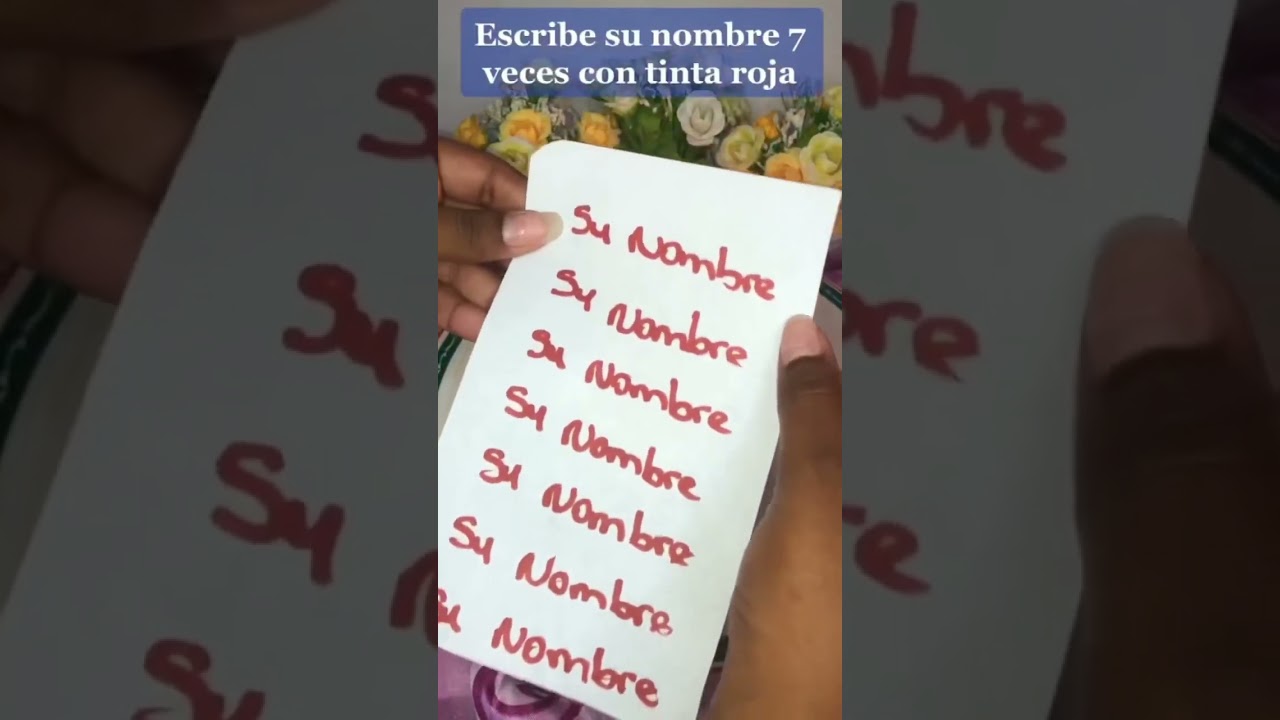 Escribe su nombre 7
veces con tinta roja
Su Nombre
Su Nombre
Su Nombre
Su Nombre
Su Nombre
Su Nombre
Su Nombre